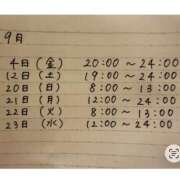 9月
4日(金) 20:00〜24:00
12日(土) 19:00〜24:00
20日(日) 8:00〜13:00
21日(月) 12:00〜24:00
22日(火) 8:00〜13:00
23日(水) 12:00〜24:00